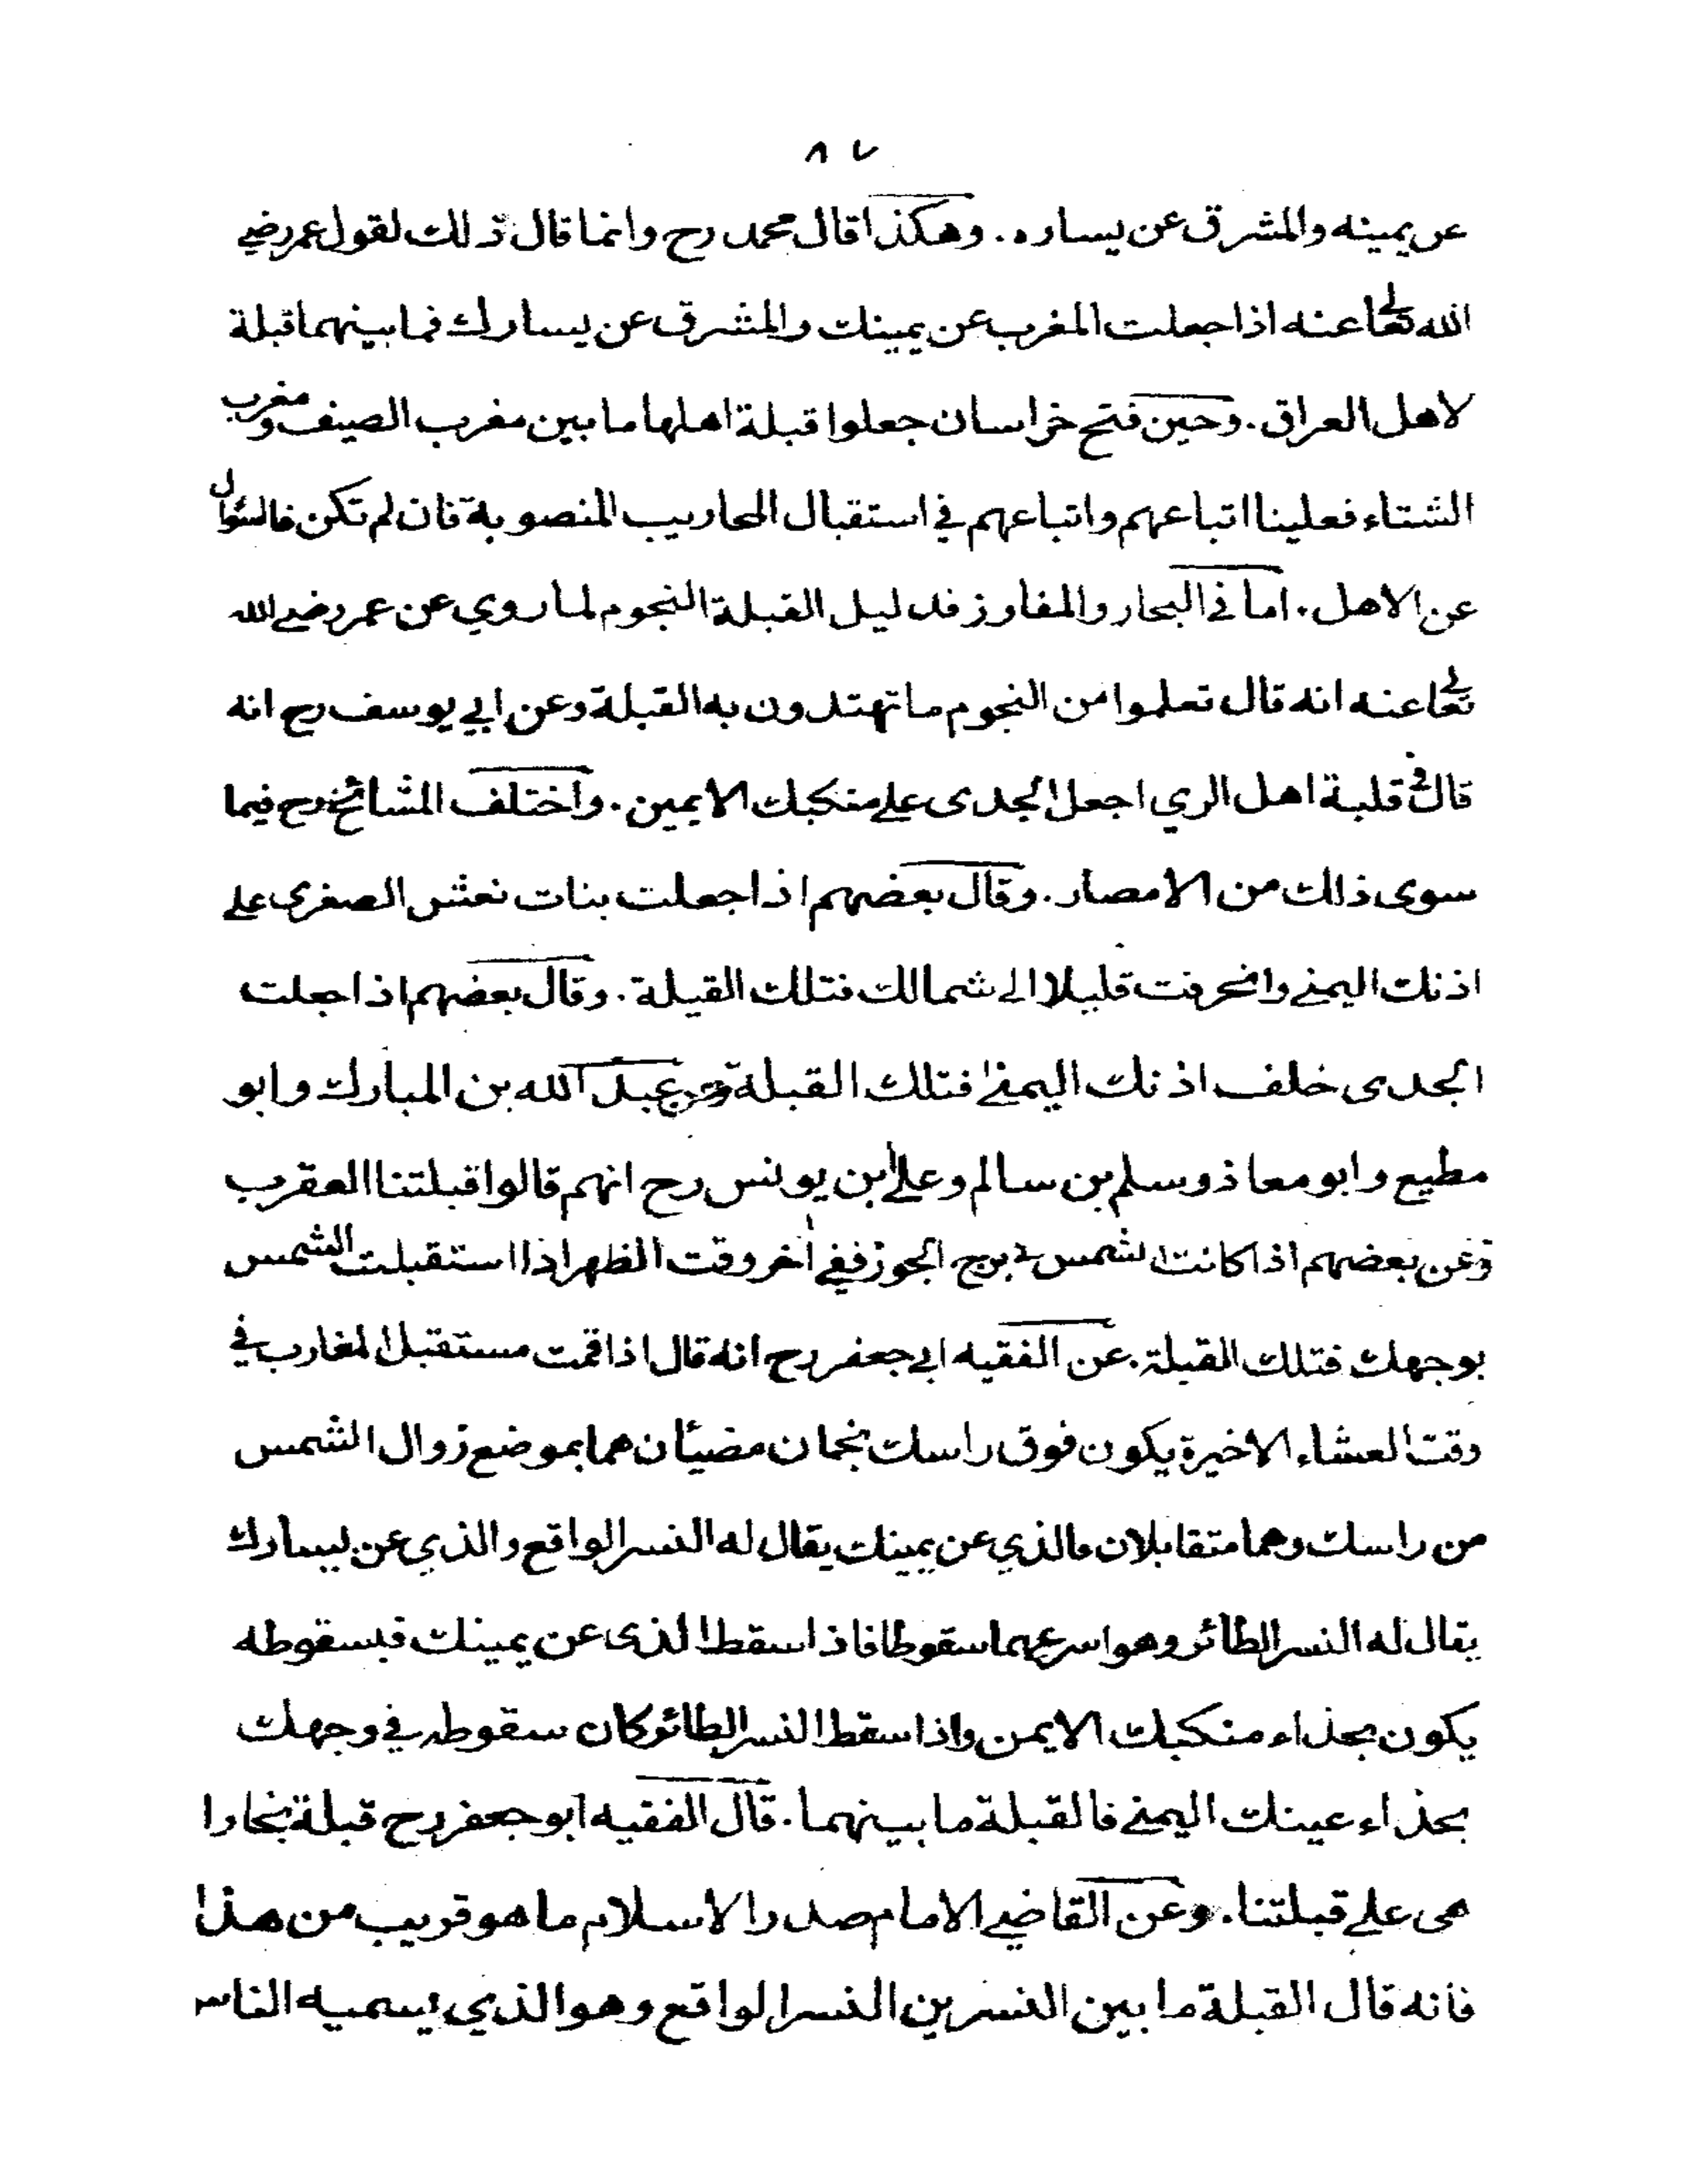 ٨٧
عن يمينه والمشرق عن يساره. وهكذا قال محمد رح وانما قال ذلك لقول عمر رضي
الله تعالى عنه اذا جعلت المغرب عن يمينك والمشرق عن يسارك فما بينهما قبلة
لاهل العراق. وحين فتح خراسان جعلوا قبلة اهلها ما بين مغرب الصيف ومغرب
الشتاء فعلينا اتباعهم واتباعهم في استقبال المحاريب المنصوبة فان لم تكن فالسؤال
عن الاهل. اما في البحار والمفاوز فدليل القبلة النجوم لما روي عن عمر رضي الله
تعالى عنه انه قال تعلموا من النجوم ما تهتدون به القبلة وعن ابي يوسف رح انه
قال في قلبة اهل الري اجعل الجدى على منكبك الايمين. واختلف المشائخ رح فيما
سوى ذلك من الامصار. وقال بعضهم اذا جعلت بنات نعش الصغرى على
اذنك اليمنى وانحرفت قليلا الى شمالك فتلك القبلة. وقال بعضهم اذا جعلت
الجدى خلف اذنك اليمنى فتلك القبلة وعن عبد الله بن المبارك وابو
مطيع وابو معاذ وسلم بن سالم وعلى ابن يونس رح انهم قالوا قبلتنا العقرب
وعن بعضهم اذا كانت الشمس في برج الجوز ففي اخر وقت الظهر اذا استقبلت الشمس
بوجهك فتلك القبلة. عن الفقيه ابي جعفر رح انه قال اذا قمت مستقبل المغارب في
وقت العشاء الاخيرة يكون فوق راسك نجمان مضيئان هما بموضع زوال الشمس
من راسك وهما متقابلان فالذي عن يمينك يقال له النسر الواقع والذي عن يسارك
يقال له النسر الطائر وهو اسرعهما سقوطا فاذا سقط الذى عن يمينك فبسقوطه
يكون بحذاء منكبك الايمن واذا سقط النسر الطائر كان سقوطه في وجهك
بحذاء عينك اليمنى فالقبلة ما بينهما. قال الفقيه ابو جعفر رح قبلة بخارا
هى على قبلتنا. وعن القاضي الامام صدر الاسلام ما هو قريب من هذا
فانه قال القبلة ما بين النسرين النسر الواقع وهو الذي يسميه الناس